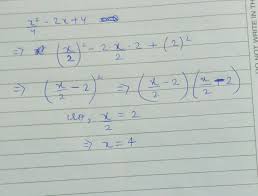 x²/4 - 2x + 4
⇒ (x/2)² - 2 x/2 · 2 + (2)²
⇒ (x/2 - 2)² ⇒ (x/2 - 2)(x/2 - 2)
x/2 = 2
⇒ x = 4
DO NOT WRITE IN TH